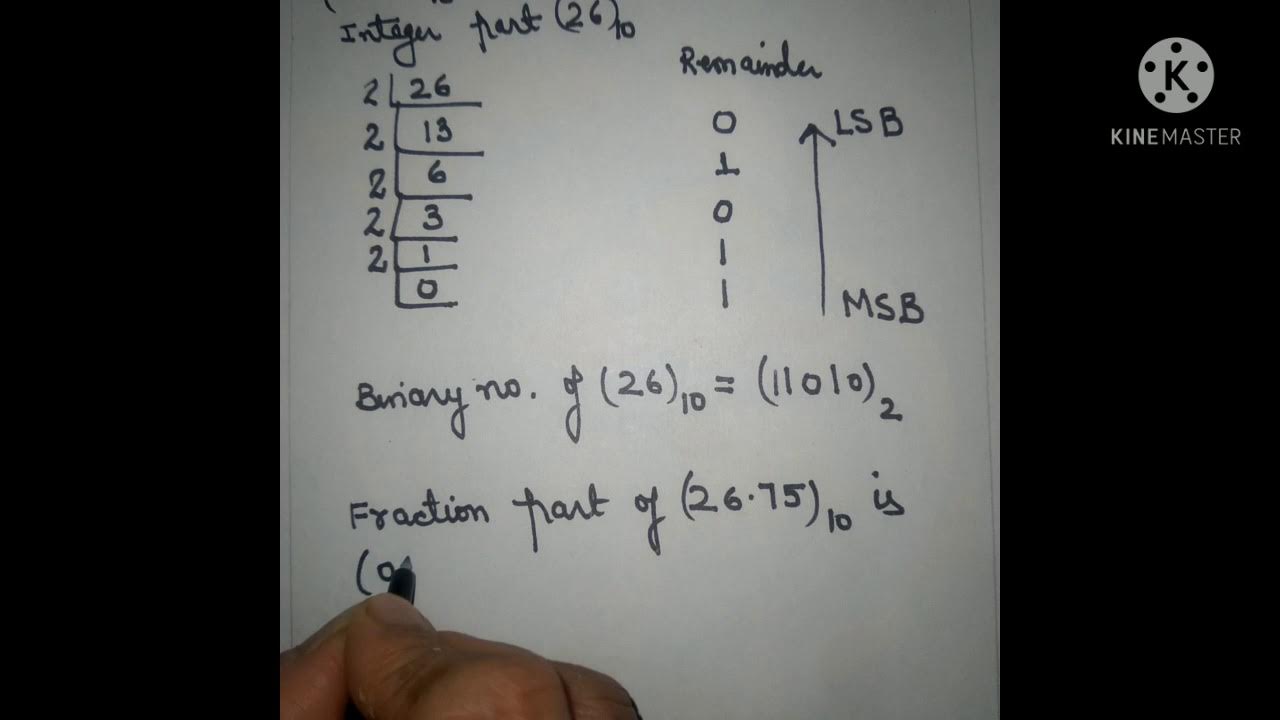 Integer part (26)10
Remainder
2 26
2 13 0 LSB
2 6 1
2 3 0
2 1 1
0 1 MSB
Binary no. of (26)10 = (11010)2
Fraction part of (26.75)10 is
(0
K
KINEMASTER